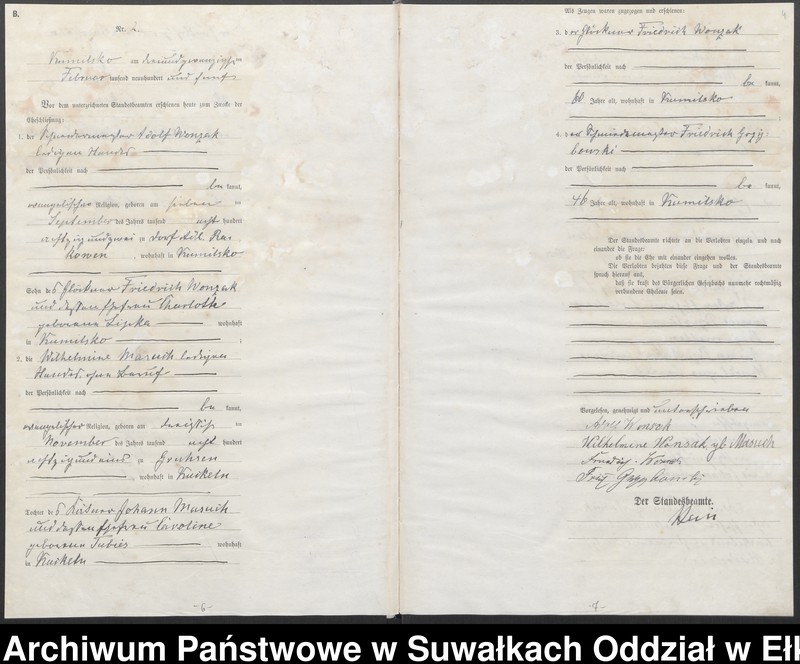 B.
Nr. 2.
Kumilsko am dreiundzwanzigsten
Februar tausend neunhundert und fünf
Vor dem unterzeichneten Standesbeamten erschienen heute zum Zweck der
Eheschließung:
1. der Schneidermeister Adolf Wonzak
ledigen Standes
der Persönlichkeit nach
be kannt,
evangelischer Religion, geboren am sieben ten
September des Jahres tausend acht hundert
achtzigundzwei zu Dorf Adl. Ra-
kowen, wohnhaft in Kumilsko
Sohn des Glöckner Friedrich Wonzak
und dessen Ehefrau Charlotte
geborene Lipka wohnhaft
in Kumilsko ;
2. die Wilhelmine Masuch ledigen
Standes, ohne Beruf
der Persönlichkeit nach
be kannt,
evangelischer Religion, geboren am dreißigsten
November des Jahres tausend acht hundert
achtzigundeins zu Gruhsen
, wohnhaft in Kurkeln
Tochter des Kätner Johann Masuch
und dessen Ehefrau Caroline
geborenen Tubies wohnhaft
in Kurkeln
-6-
Als Zeugen waren zugezogen und erschienen:
3. der Glöckner Friedrich Wonzak
der Persönlichkeit nach
be kannt,
60 Jahre alt, wohnhaft in Kumilsko
4. der Schmiedemeister Friedrich Grzy-
bowski
der Persönlichkeit nach
be kannt,
46 Jahre alt, wohnhaft in Kumilsko
Der Standesbeamte richtete an die Verlobten einzeln und nach
einander die Frage:
ob sie die Ehe mit einander eingehen wollen.
Die Verlobten bejahten diese Frage und der Standesbeamte
sprach hierauf aus,
daß sie kraft des Bürgerlichen Gesetzbuchs nunmehr rechtmäßig
verbundene Eheleute seien.
Vorgelesen, genehmigt und unterschrieben
Adolf Wonsak
Wilhelmine Wonsak gb Masuch
Friedrich
Der Standesbeamte.
-7-
Archiwum Państwowe w Suwałkach Oddział w Eł